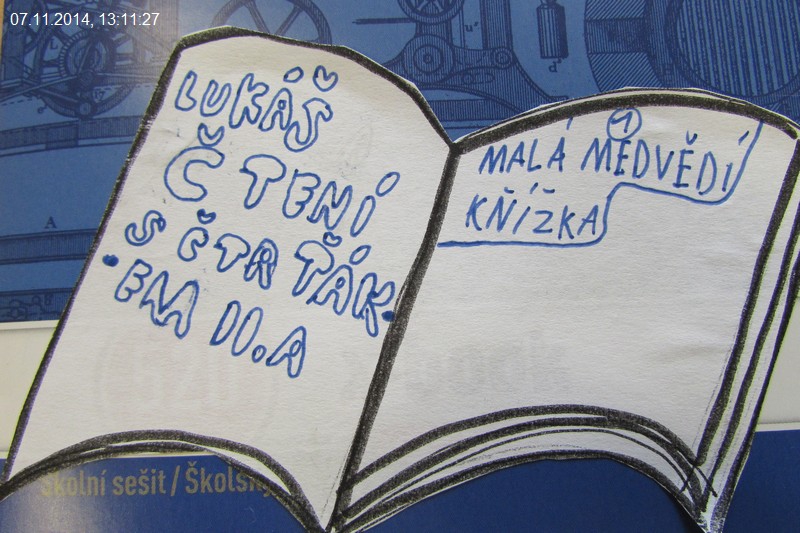 07.11.2014, 13:11:27
LUKÁŠ
ČTENÍ
S ČTRŤÁK-
-EM II.A
1
MALÁ MEDVĚDÍ
KŇÍŽKA
A
Školní sešit / Školský